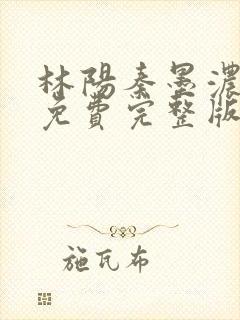 林陽秦墨濃
免費完整版
施瓦布